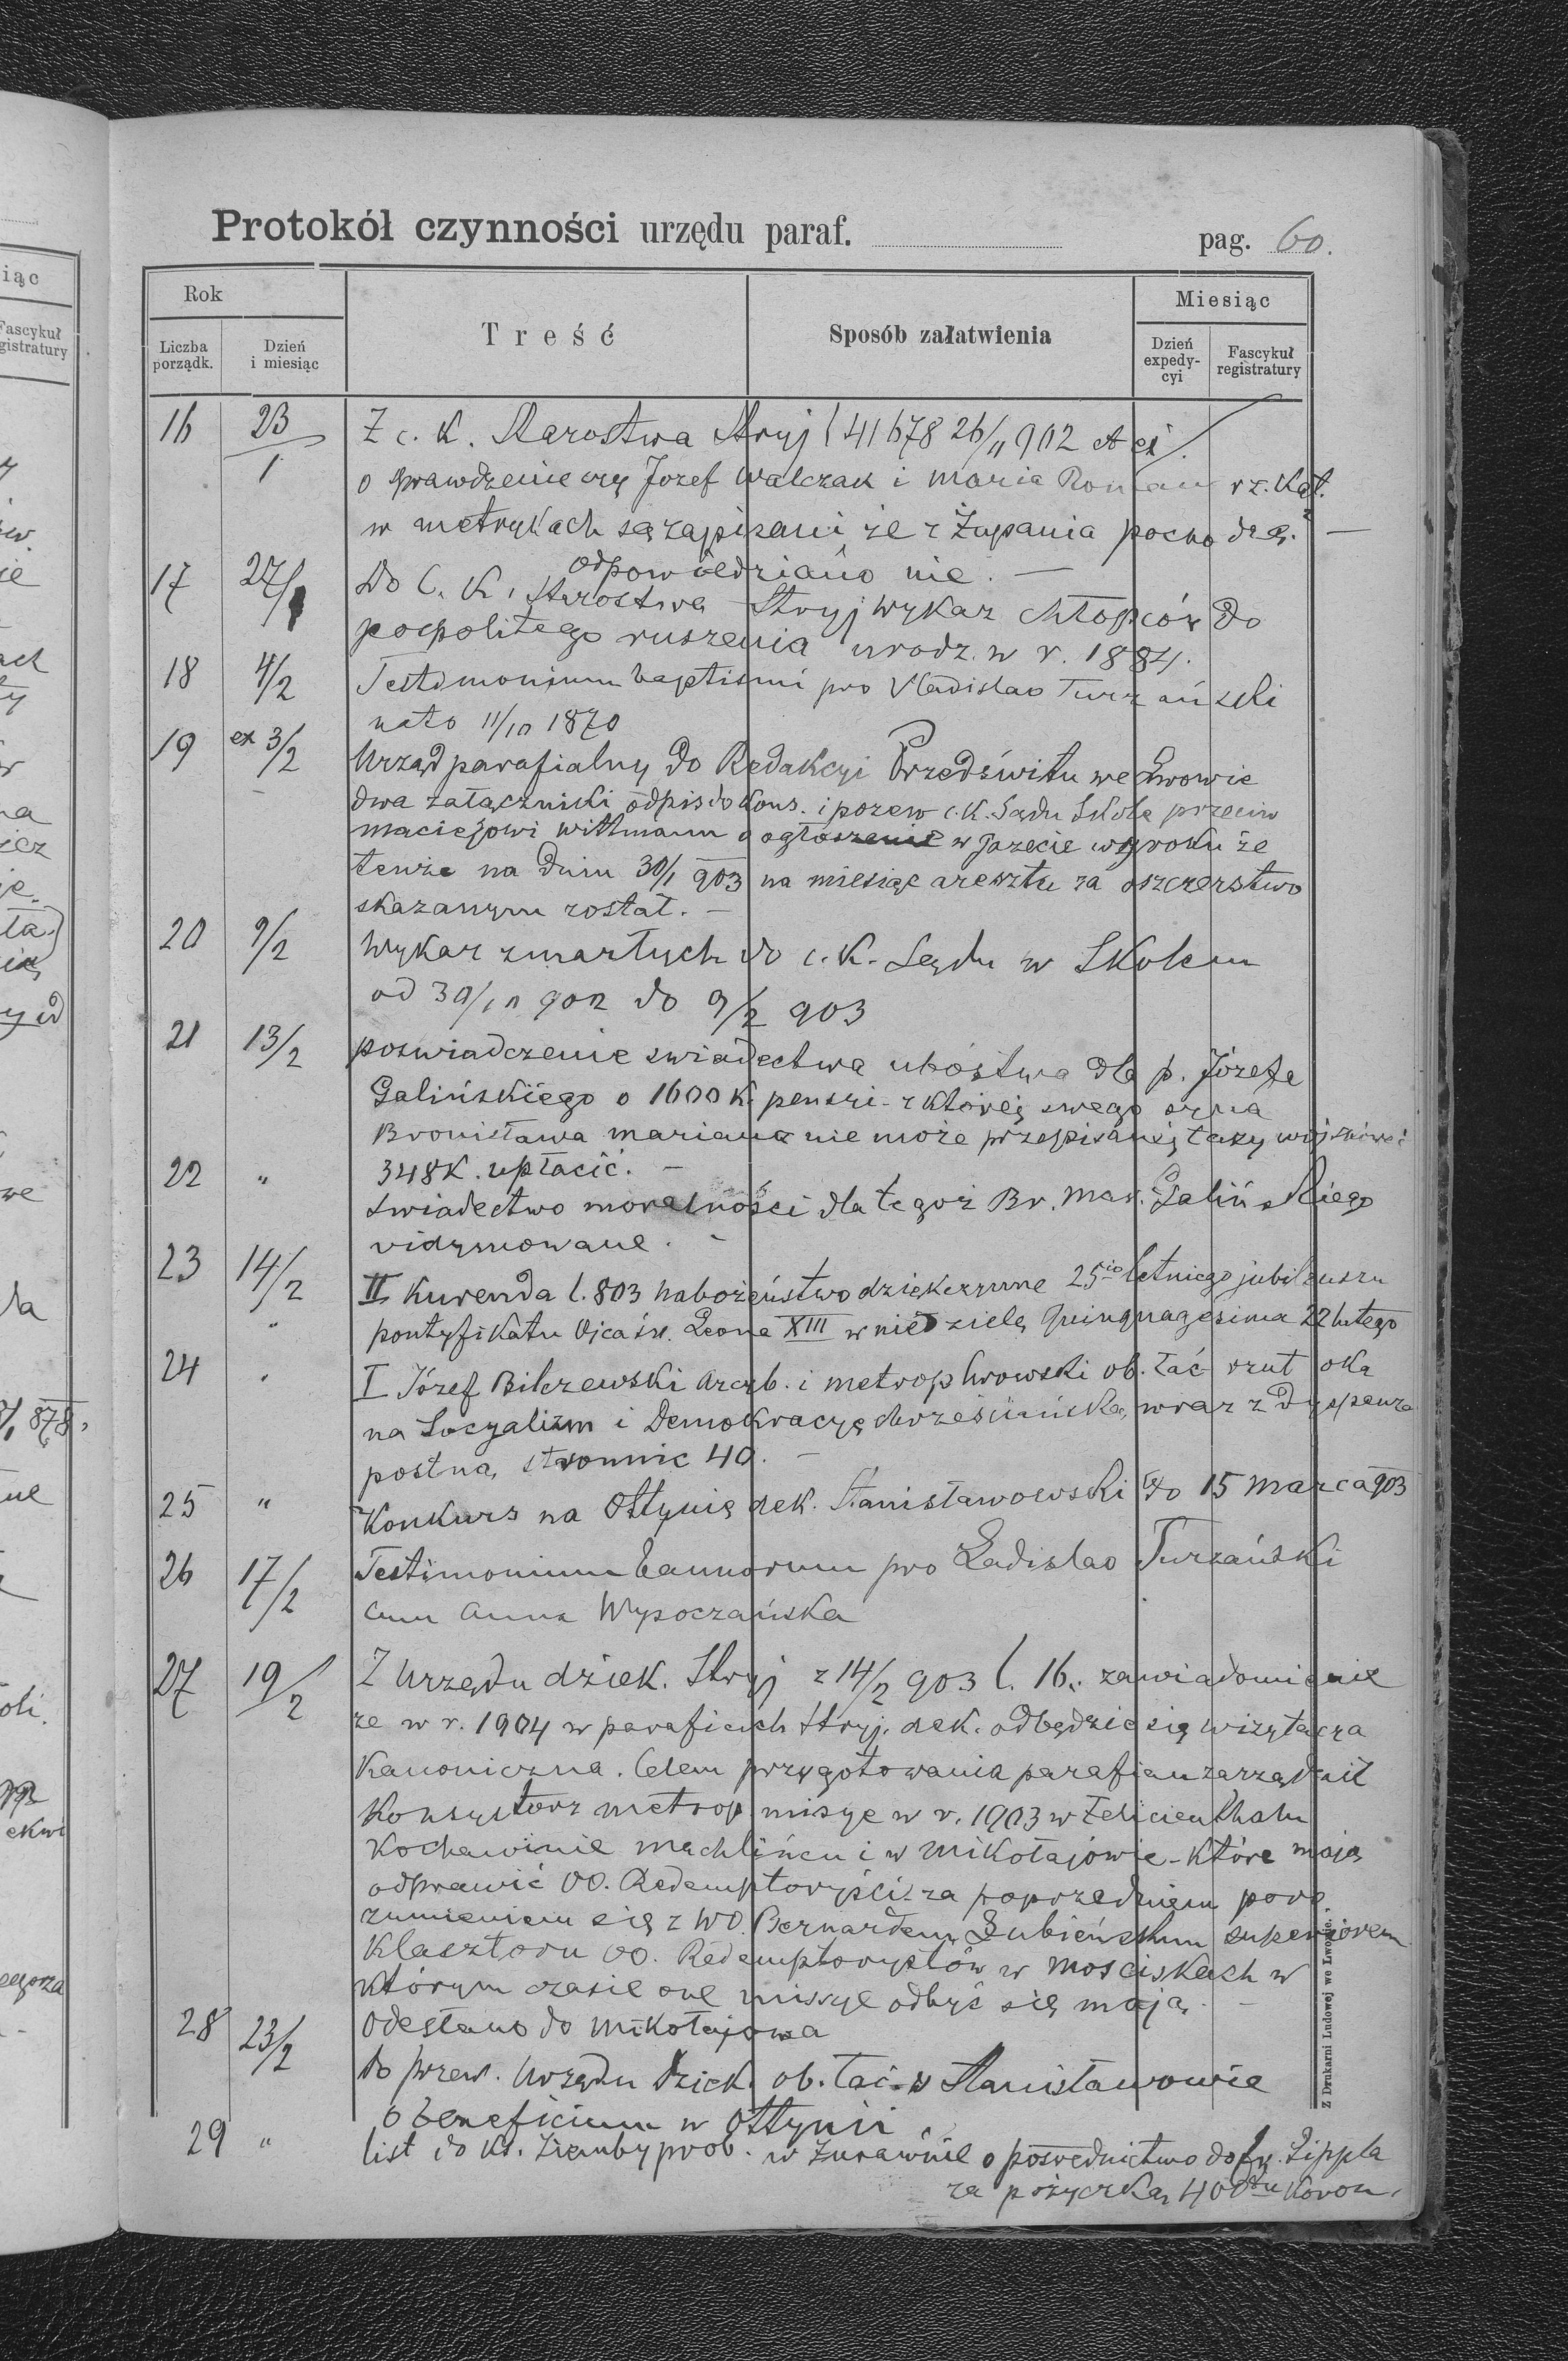 Protokół czynności urzędu paraf. pag. 60.
Rok
Treść
Sposób załatwienia
Miesiąc
Liczba porządk.
Dzień i miesiąc
Dzień expedycyi
Fascykuł registratury
16 23/1 Z c. k. Starostwa Stryj l 41678 26/11 902
o sprawdzenie czy Jozef Walczak i Maria Roman rz. kat.
w metrykach są zapisani że z Żupania pochodzą? —
odpowiedziano nie. —
17 27/1 Do C. K. Starostwa Stryj wykaz chłopców do
pospolitego ruszenia urodz. w r. 1884.
18 4/2 Testimonium baptismi pro Vladislao Turzański
nato 11/10 1870
19 ex 3/2 Urząd parafialny do Redakcyi Przedświtu we Lwowie
dwa załączniki odpis do Kons. i pozew c. K. Sądu Skole przeciw
Maciejowi Wittmann o ogłoszenie w gazecie wyroku że
tenże na dniu 30/1 903 na miesiąc aresztu za oszczerstwo
skazanym został. —
20 9/2 Wykaz zmarłych do c. K. Sądu w Skolem
od 30/10 902 do 9/2 903
21 13/2 poswiadczenie swiadectwa ubóstwa dla p. Józefa
Galińskiego o 1600 K. pensyi z której swego syna
Bronisława Mariana nie może przepisanej taxy wojskowej
348 K. upłacić. —
22 " Swiadectwo moralności dla tegoż Br. Mar. Galińskiego
vidymowane. -
23 14/2 II Kurenda l. 803 nabożeństwo dziękczynne 25cio letniego jubileuszu
pontyfikatu Ojca św. Leona XIII w niedzielę Quinquagesima 22 lutego
24 " I Józef Bilczewski Arcyb. i metrop lwowski ob. łać rzut oka
na Socyalizm i Demokracyę chrześcińską, wraz z dyspenzą
postną, stronnic 40. —
25 " Konkurs na Ottynię dek. Stanisławowski do 15 marca 903
26 17/2 Testimonium bannorum pro Ladislao Turzański
cum Anna Wypoczańska
27 19/2 Z Urzędu dziek. Stryj z 14/2 903 l. 16. zawiadomienie
że w r. 1904 w parafiach Stryj. dek. odbędzie się wizytacya
Kanoniczna. Celem przygotowania parafian zarządził
Konsystorz metrop. misye w r. 1903 w Felicienthalu
Kochawinie Machlińcu i w Mikołajowie - które mają
odprawić OO. Redemptoryści za poprzedniem poro
zumieniem się z WO. Bernardem Łubieńskim superiorem
Klasztoru OO. Redemptorystów w Mosciskach w
którym czasie one missye odbyć się mają. —
Odesłano do Mikołajowa
28 23/2 Do przew. Urzędu Dziek. ob. łać. w Stanisławowie
o beneficium w Ottynii
29 " list do Ks. Ziemby prob. w Żurawnie o pośrednictwo do Lippla
za pożyczką 400 Koron.
Z Drukarni Ludowej we Lwowie.